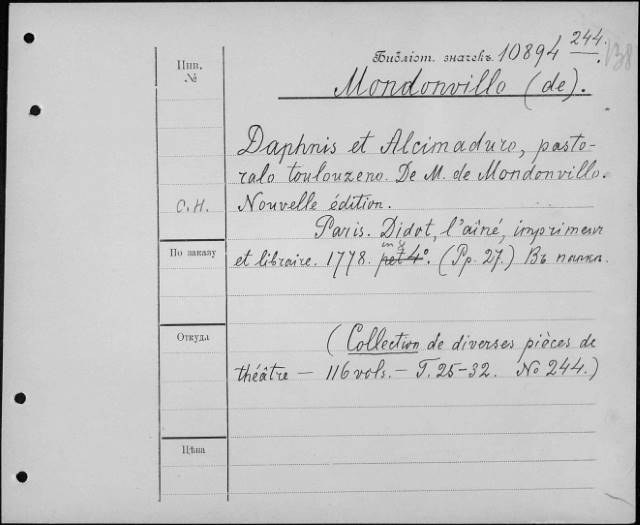 Инв. №
Библіот. значекъ 10894 244.
138
Mondonville (de).
Daphnis et Alcimaduro, pasto-
rale toulouzeno. De M. de Mondonville.
С.Н. Nouvelle édition.
Paris. Didot, l'aîné, imprimeur
По заказу
et libraire. 1778. in 8 pet 4º. (Pp. 27.) Въ папкѣ.
Откуда
(Collection de diverses pièces de
théâtre — 116 vols. — T. 25-32. No 244.)
Цѣна